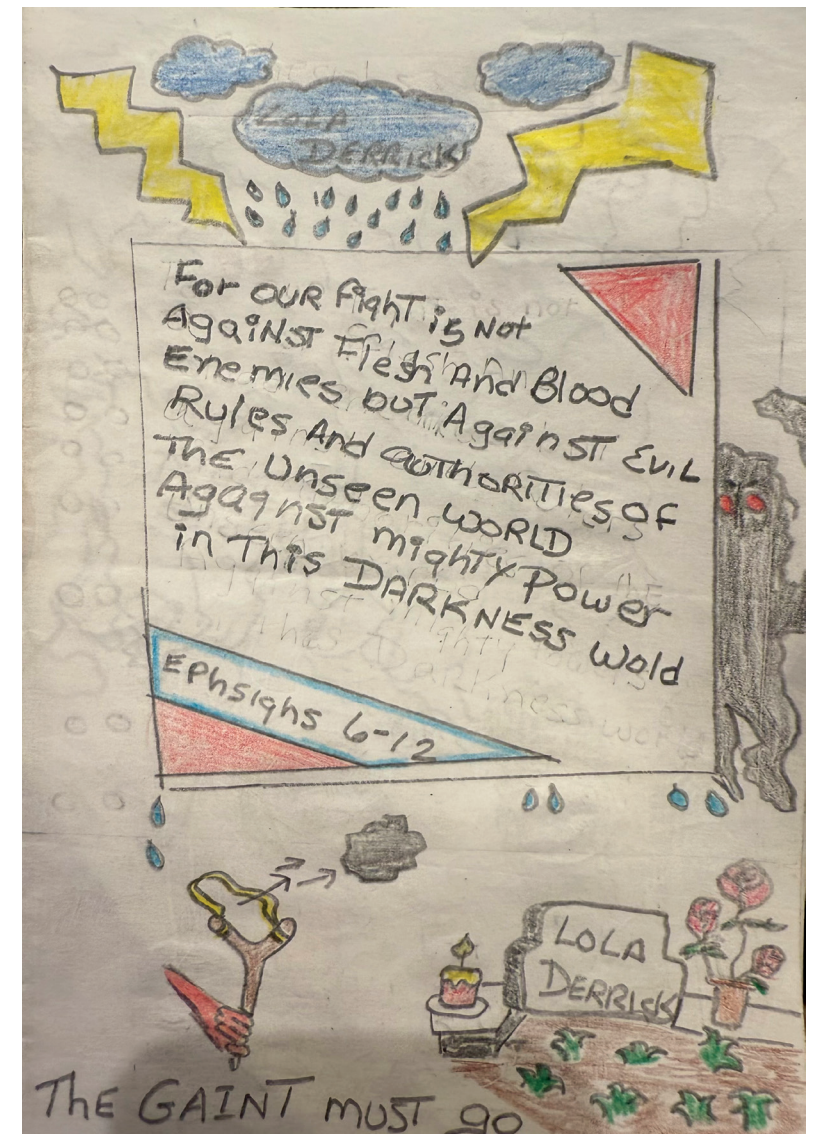 LOLA
DERRICK
For OUR FighT is Not
AgaiNST Flesh And Blood
Enemies buT Against EviL
Rules And authoRiTies of
The Unseen WORLD
Against mighty Power
in This DARKNESS Wold
EPhsighs 6-12
LOLA
DERRICK
ThE GAINT must go